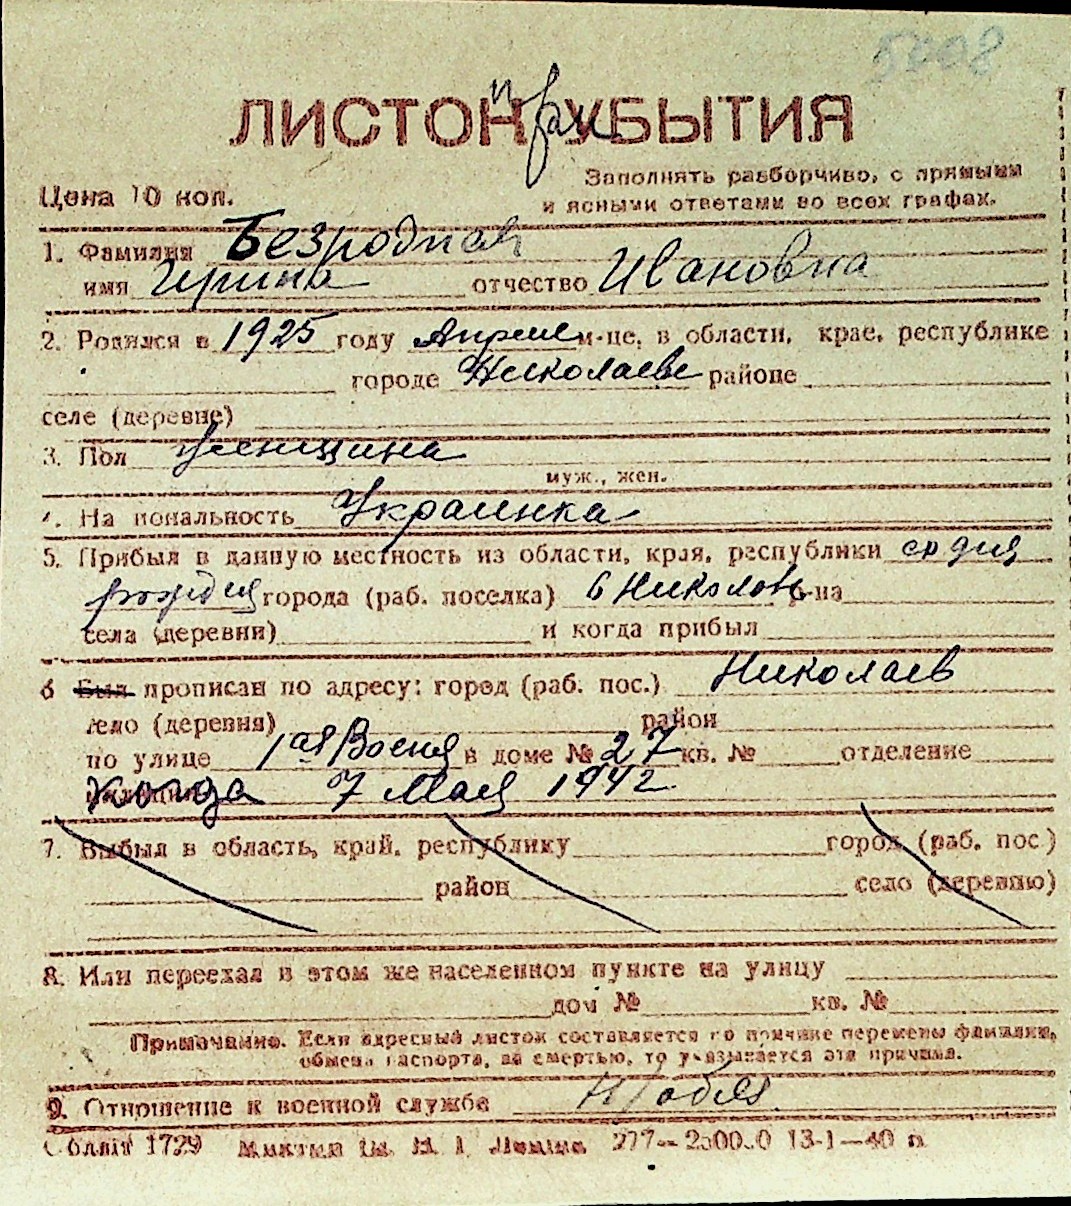 5008
ЛИСТОК УБЫТИЯ
Цена 10 коп.
Заполнять разборчиво, с прямыми
и ясными ответами во всех графах.
1. Фамилия Безродная
имя Ирина отчество Ивановна
2. Родился в 1925 году Апреле м-це, в области, крае, республике
городе Николаеве районе
селе (деревне)
3. Пол женщина
муж., жен.
4. На иональность Украинка
5. Прибыл в данную местность из области, края, республики со дня
рождия города (раб. поселка) в Николаев р-на
села (деревни) и когда прибыл
6 Был прописан по адресу: город (раб. пос.) Николаев
село (деревня) район
по улице 1ая Воения в доме № 27 кв. № отделение
когда 7 Мая 1942
7. Выбыл в область, край, республику город (раб. пос)
район село (деревню)
8. Или переехал в этом же населенном пункте на улицу
дом № кв. №
Примечание. Если адресный листок составляется по причине перемены фамилии,
обмена паспорта, за смертью, то указывается эта причина.
9. Отношение к военной службе
Облліт 1729 277— 13-1—40 п